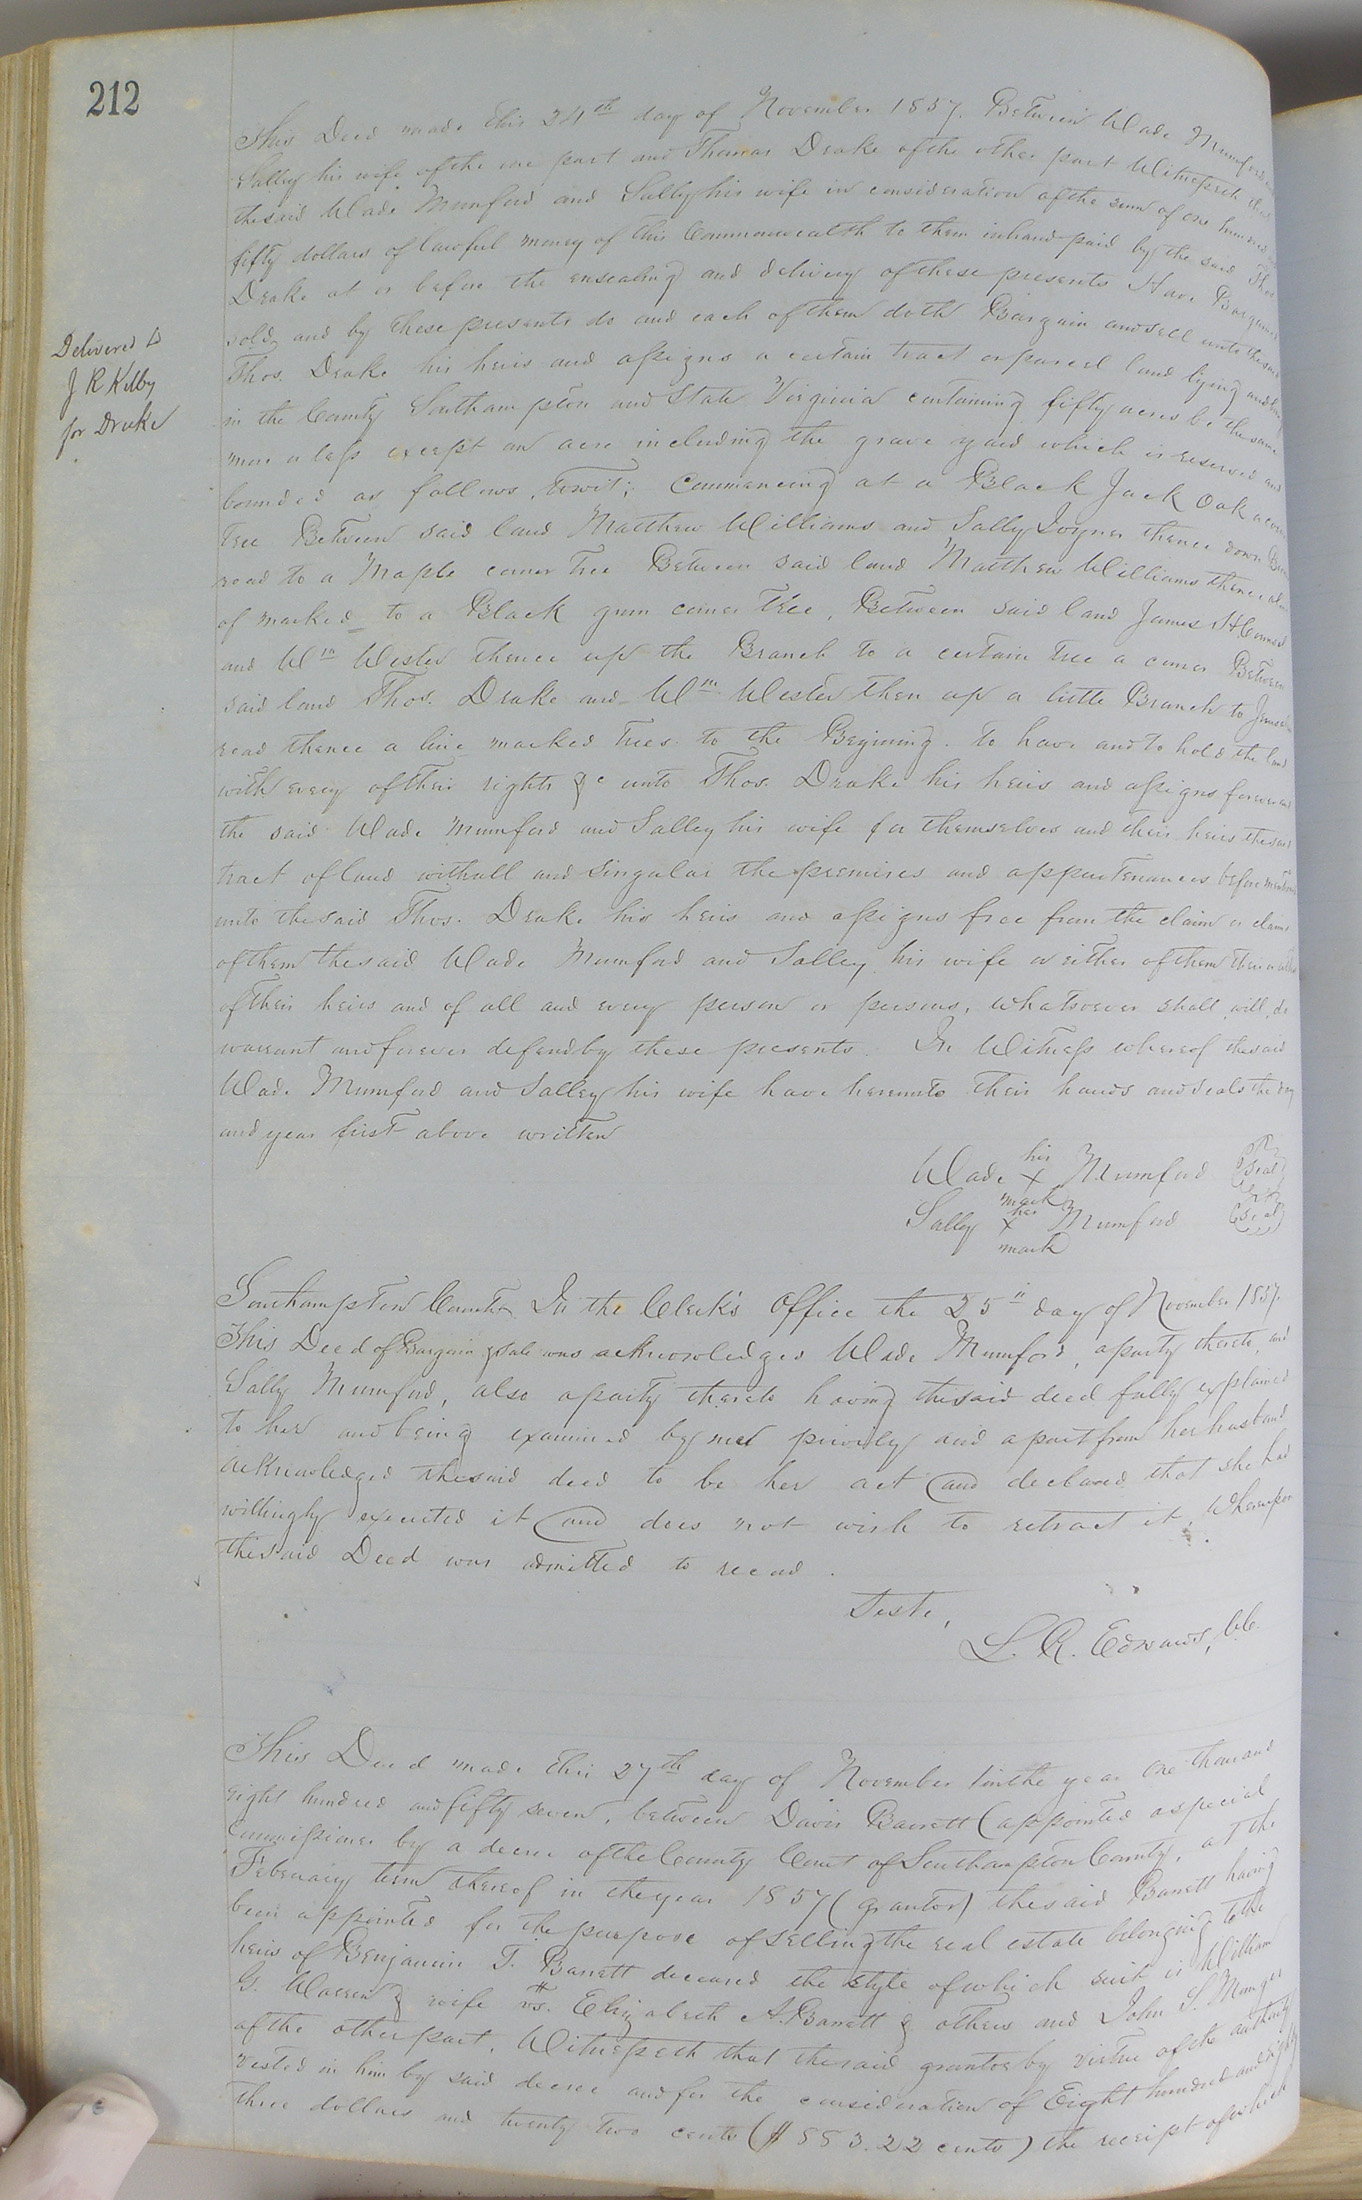 212
This Deed made this 24th day of November 1857. Between Wade Mumford
Salley his wife of the one part and Thomas Drake of the other part Witnesseth that
the said Wade Mumford and Sally his wife in consideration of the sum of one hundred
fifty dollars of lawful money of this Commonwealth to them in hand paid by the said Thos
Drake at or before the ensealing and delivery of these presents Have Bargained
sold, and by these presents do and each of them doth Bargain and sell unto the said
Thos. Drake his heirs and assigns a certain tract or parcel land lying and being
in the County Southampton and State Virginia containing fifty acres be the same
more or less except an acre including the grave yard which is reserved and
bounded as follows, towit; Commencing at a Black Jack Oak a corner
tree Between said land Matthew Williams and Sally Joyner thence down
road to a Maple corner tree Between said land Matthew Williams thence
of marked to a Black gum corner tree, Between said land James H
and Wm Wester thence up the Branch to a certain tree a corner Between
said land Thos. Drake and Wm. Wester then up a little Branch to
road thence a line marked trees to the Begining. to have and to hold the land
with every of their rights &c unto Thos. Drake his heirs and assigns forever and
the said Wade Mumford and Salley his wife for themselves and their heirs the said
tract of land withall and singular the premises and appurtenances before mentioned
unto the said Thos. Drake his heirs and assigns free from the claim or claims
of them the said Wade Mumford and Salley his wife or either of them their or either
of their heirs and of all and every person or persons, whatsoever shall, will, do
warrant and forever defend by these presents. In Witness whereof the said
Wade Mumford and Salley his wife have hereunto their hands and seals the day
and year first above written
Delivered to
J R Kilby
for Drake
his
Wade X Mumford (Seal)
mark
her
Sally X Mumford (Seal)
mark
Southampton County In the Clerk's Office the 25th day of November 1857.
This Deed of Bargain & sale was acknowledged Wade Mumford, a party thereto, and
Sally Mumford, also a party thereto having the said deed fully explained
to her and being examined by me privily and apart from her husband
acknowledged the said deed to be her act and declared that she had
willingly executed it and does not wish to retract it, Whereupon
the said Deed was admitted to record.
Teste,
L. R. Edwards, CC.
This Deed made this 27th day of November in the year One thousand
eight hundred and fifty seven, between Davis Barrett (appointed a special
Commissioner by a decree of the County Court of Southampton County, at the
February term thereof in the year 1857 (grantor) the said Barrett having
been appointed for the purpose of selling the real estate belonging to the
heirs of Benjamin T. Barrett deceased the style of which suit is William
G. Warren & wife vs. Elizabeth A. Barrett & others and John S. Manger
of the other part. Witnesseth that the said grantor by virtue of the authority
vested in him by said decree and for the consideration of Eight hundred and eighty
three dollars and twenty two cents ($883.22 cents) the receipt of which